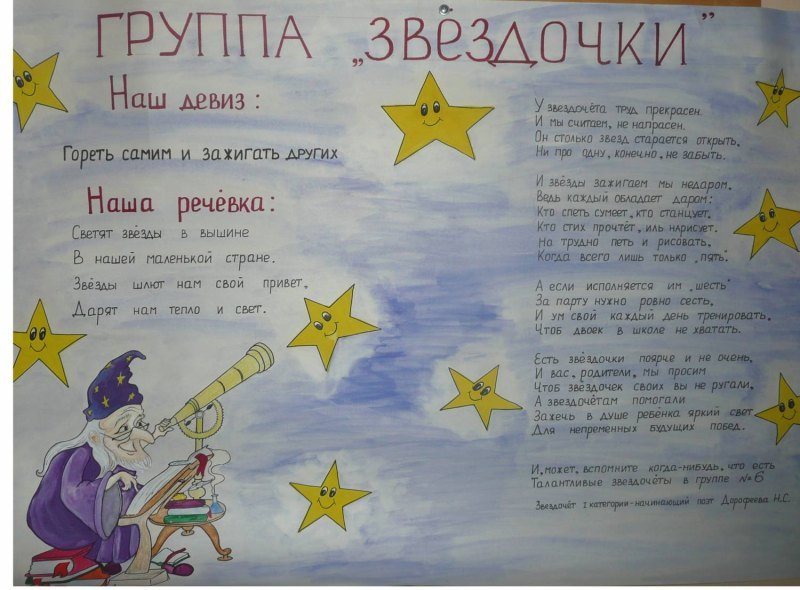 ГРУППА „ЗВЁЗДОЧКИ”
Наш девиз:
Гореть самим и зажигать других
Наша речёвка:
Светят звёзды в вышине
В нашей маленькой стране.
Звёзды шлют нам свой привет,
Дарят нам тепло и свет.
У звездочёта труд прекрасен
И мы считаем, не напрасен.
Он столько звезд старается открыть,
Ни про одну, конечно, не забыть.
И звёзды зажигаем мы недаром,
Ведь каждый обладает даром:
Кто спеть сумеет, кто станцует,
Кто стих прочтёт, иль нарисует.
Но трудно петь и рисовать,
Когда всего лишь только „пять”.
А если исполняется им „шесть”
За парту нужно ровно сесть,
И ум свой каждый день тренировать,
Чтоб двоек в школе не хватать.
Есть звёздочки поярче и не очень,
И вас, родители, мы просим
Чтоб звёздочек своих вы не ругали,
А звездочётам помогали
Зажечь в душе ребёнка яркий свет
Для непременных будущих побед.
И, может, вспомните когда-нибудь, что есть
Талантливые звездочёты в группе № 6
Звездочёт I категории-начинающий поэт Дорофеева Н.С.